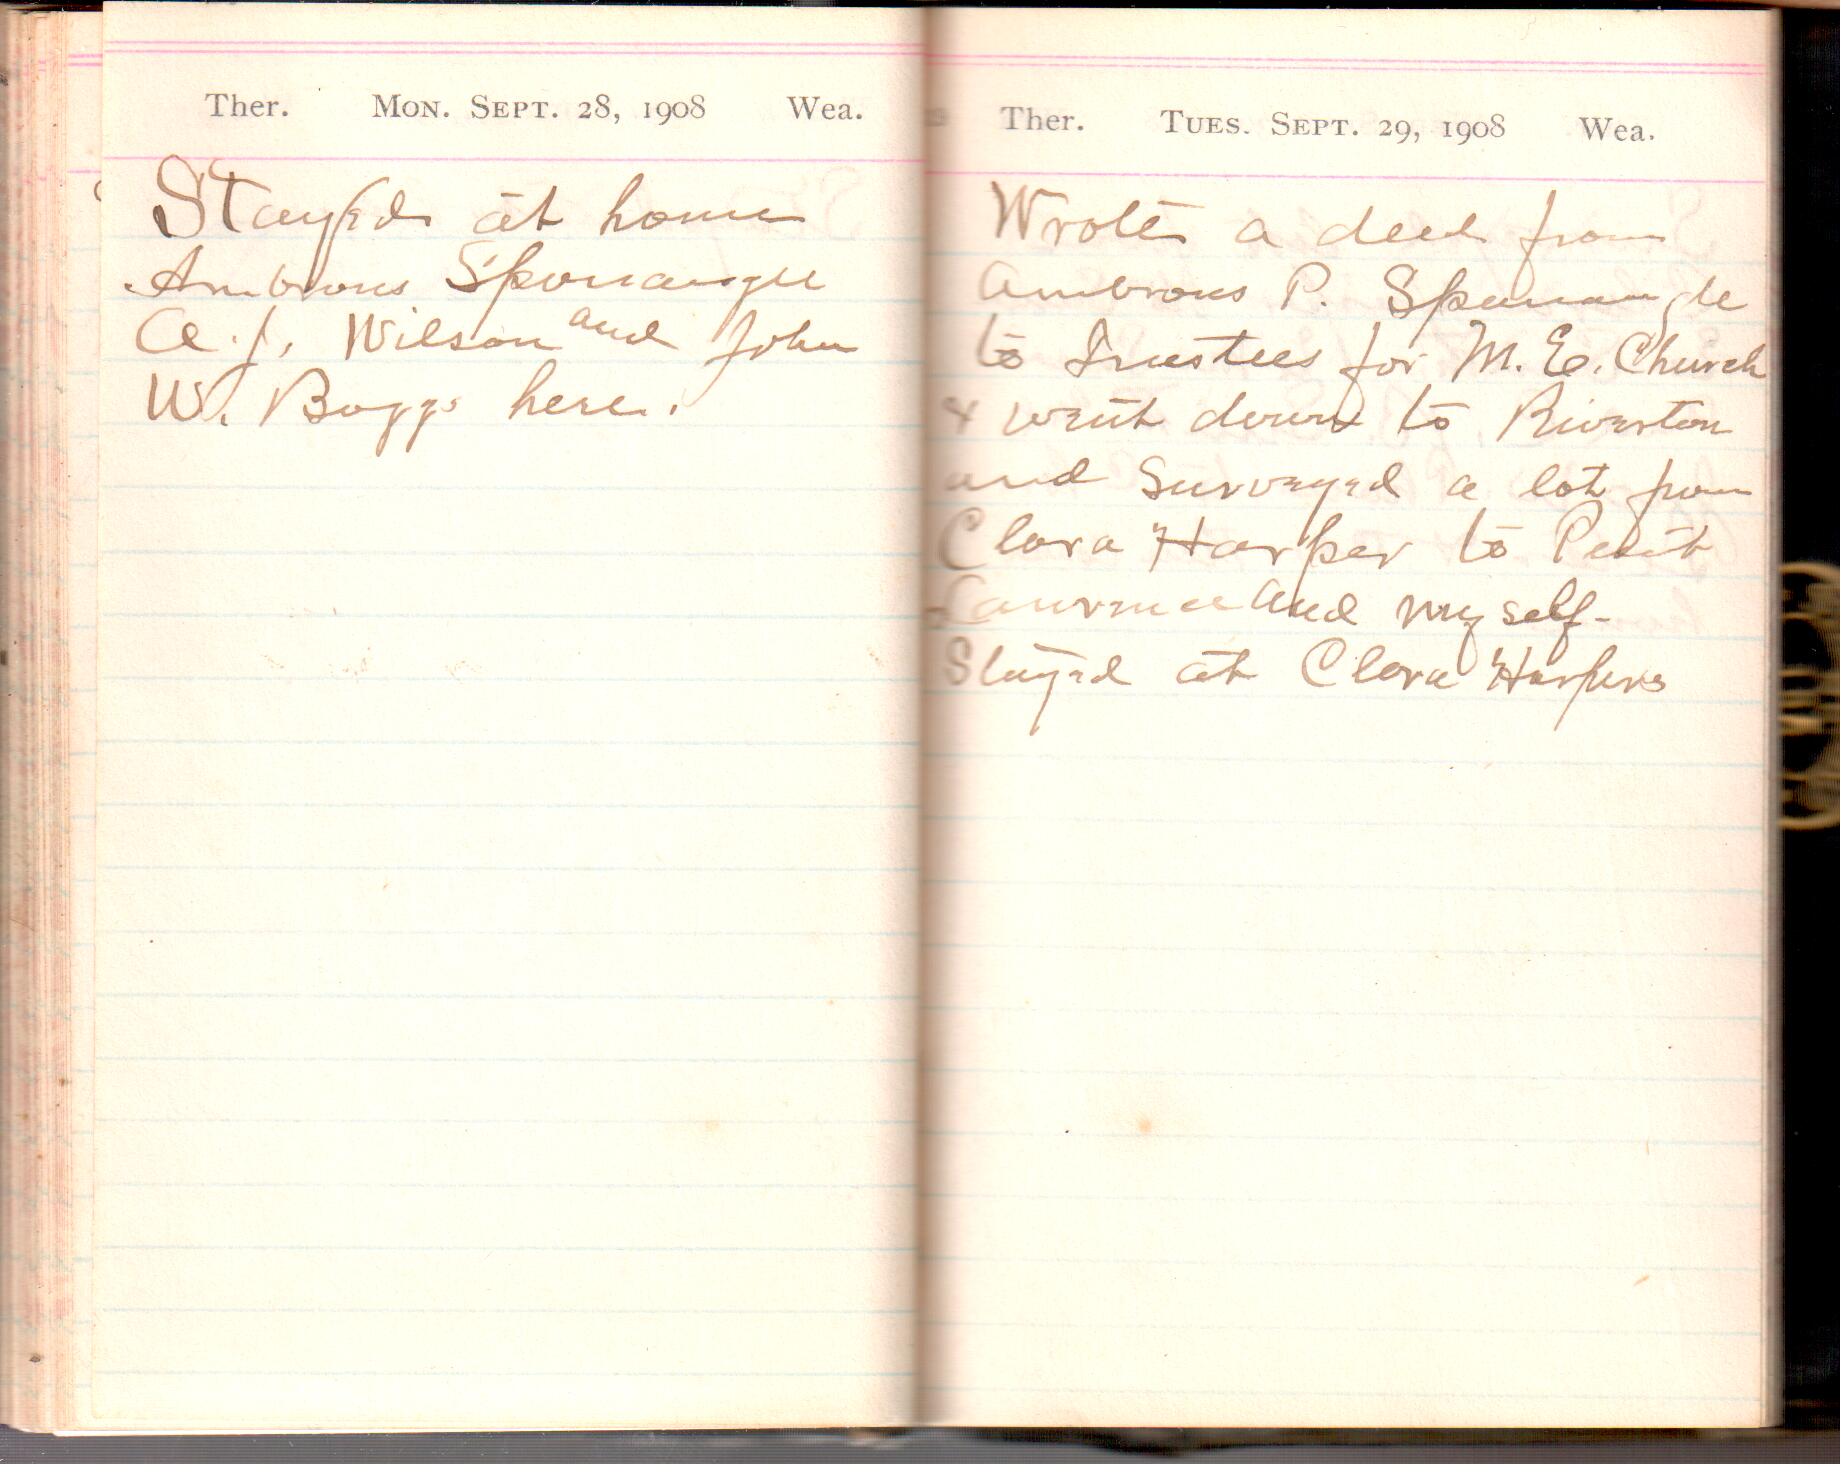 Ther. Mon. Sept. 28, 1908 Wea.
Stayed at home
Ambrous Sponaugle
A. J. Wilson and John
W. Boggs here.
Ther. Tues. Sept. 29, 1908 Wea.
Wrote a deed from
Ambrous P. Sponaugle
to Trustees for M. E. Church
& went down to Riverton
and Surveyed a lot from
Clora Harper to
Lawrence and myself-
Stayed at Clora Harpers